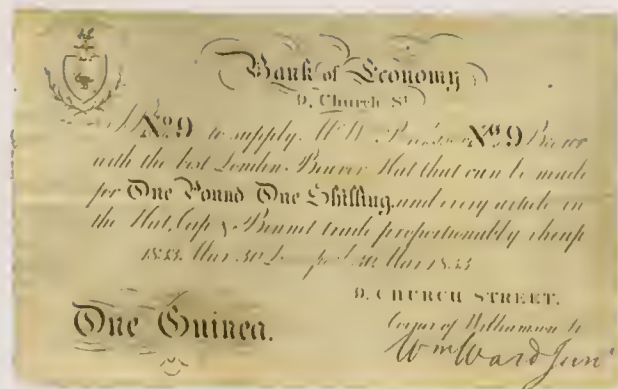 Bank of Economy
9, Church St
No 9 to supply Mr W. No 9
with the best London Beaver Hat that can be made
for One Pound One Shilling, and every article in
the Hat, Cap & Bonnet trade proportionably cheap
1833. Mar 30 30 Mar 1833
9, CHURCH STREET.
One Guinea.
Corner of Williamson St
Wm Ward Junr